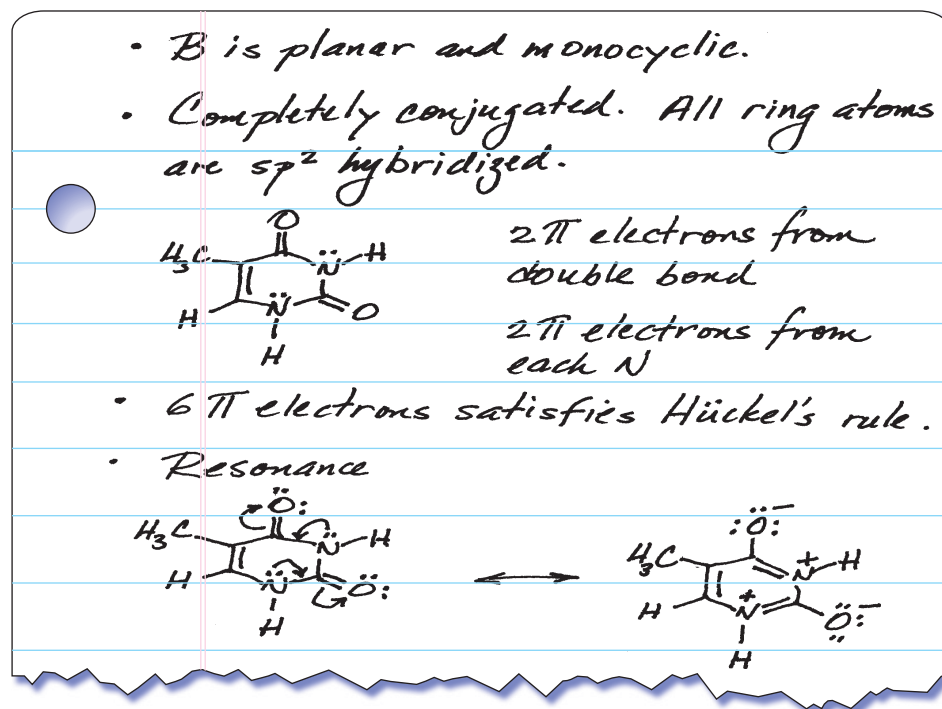 • B is planar and monocyclic.
• Completely conjugated. All ring atoms
are sp² hybridized.
O
H₃C
N̈
H
N̈
O
H
H
2π electrons from
double bond
2π electrons from
each N
• 6 π electrons satisfies Hückel's rule.
• Resonance
Ö:
H₃C
N̈
H
H
N̈
Ö:
H
:Ö:⁻
H₃C
N⁺
H
H
N⁺
Ö:⁻
H